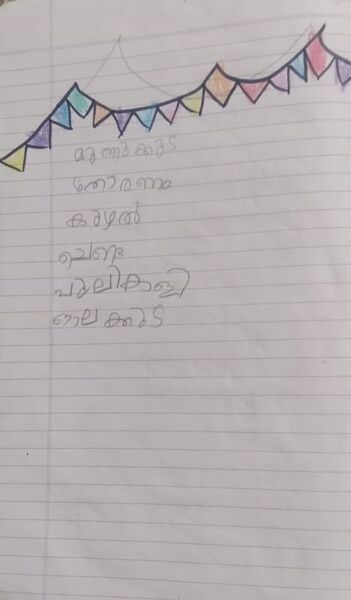 മുത്തുക്കുട
തോരണം
കുഴൽ
ചെണ്ട
പുലികാളി
ഓലക്കുട